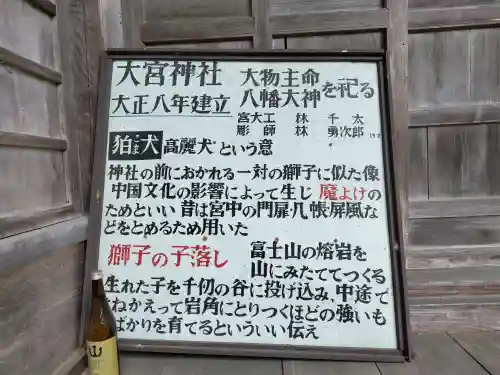 大宮神社 大物主命
大正八年建立 八幡大神 を祀る
宮大工 林 千太
彫師 林 勇次郎
狛犬 高麗犬という意
神社の前におかれる一対の獅子に似た像
中国文化の影響によって生じ 魔よけの
ためといい 昔は宮中の門扉・几帳・屏風な
どをとめるため用いた
獅子の子落し 富士山の熔岩を
山にみたててつくる
生れた子を千仞の谷に投げ込み、中途で
はねかえって岩角にとりつくほどの強いも
ばかりを育てるといういい伝え
山